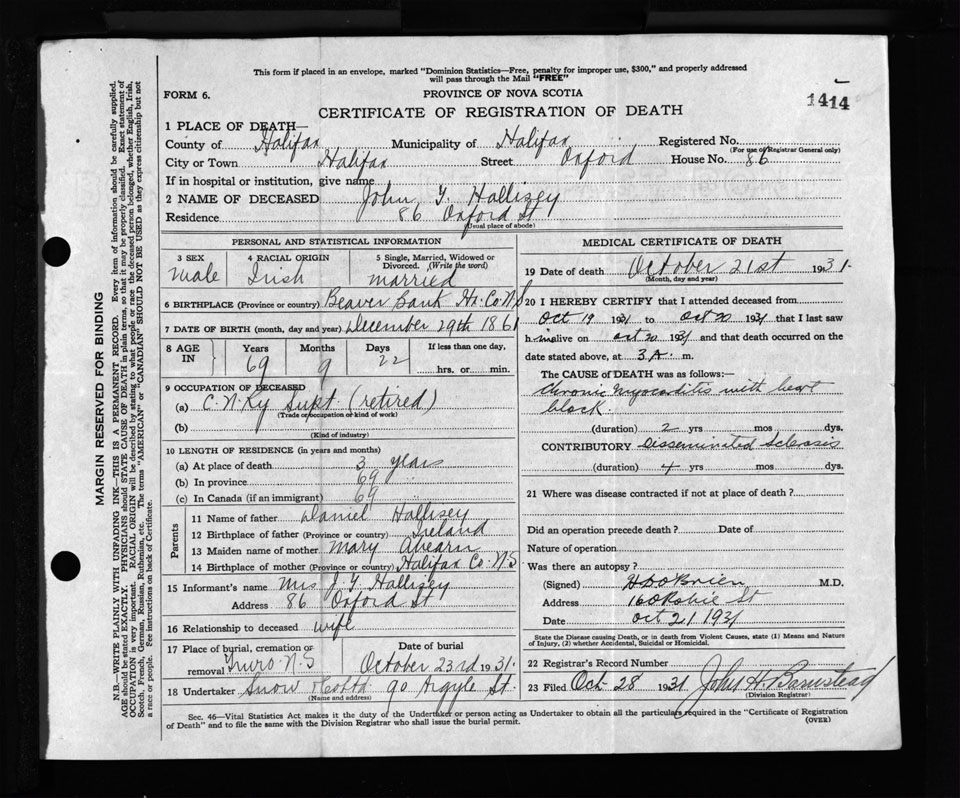 This form if placed in an envelope, marked "Dominion Statistics—Free, penalty for improper use, $300," and properly addressed
will pass through the Mail "FREE"
FORM 6.
PROVINCE OF NOVA SCOTIA
1414
CERTIFICATE OF REGISTRATION OF DEATH
1 PLACE OF DEATH—
County of Halifax Municipality of Halifax Registered No.
(For use of Registrar General only)
City or Town Halifax Street Oxford House No. 86
If in hospital or institution, give name
2 NAME OF DECEASED John Y. Hallisey
Residence 86 Oxford St
(Usual place of abode)
PERSONAL AND STATISTICAL INFORMATION
3 SEX 4 RACIAL ORIGIN 5 Single, Married, Widowed or
Divorced. (Write the word)
male Irish married
6 BIRTHPLACE (Province or country) Beaver Bank Hx. Co. N.S
7 DATE OF BIRTH (month, day and year) December 29th 1861
8 AGE IN Years Months Days If less than one day.
69 9 22 hrs. or min.
9 OCCUPATION OF DECEASED
(a) C. N. Ry Supt. (retired)
(Trade or occupation or kind of work)
(b)
(Kind of industry)
10 LENGTH OF RESIDENCE (in years and months)
(a) At place of death 3 years
(b) In province 69
(c) In Canada (if an immigrant) 69
Parents
11 Name of father Daniel Hallisey
12 Birthplace of father (Province or country) Ireland
13 Maiden name of mother Mary Ahearn
14 Birthplace of mother (Province or country) Halifax Co. N.S
15 Informant's name Mrs J. Y. Hallisey
Address 86 Oxford St
16 Relationship to deceased wife
17 Place of burial, cremation or removal Truro N.S
Date of burial
October 23rd 1931.
18 Undertaker Snow 90 Argyle St.
(Name and address)
MEDICAL CERTIFICATE OF DEATH
19 Date of death October 21st 1931.
(Month, day and year)
20 I HEREBY CERTIFY that I attended deceased from
Oct 19 1931 to Oct 20 1931 that I last saw
h im alive on Oct 20 1931 and that death occurred on the
date stated above, at 3 A. m.
The CAUSE of DEATH was as follows:—
Chronic Myocarditis with heart
block.
(duration) 2 yrs mos dys.
CONTRIBUTORY Disseminated Sclerosis
(duration) 4 yrs mos dys.
21 Where was disease contracted if not at place of death?
Did an operation precede death? Date of
Nature of operation
Was there an autopsy?
(Signed) H D O'Brien M.D.
Address 160 Robie St
Date Oct 21 1931
State the Disease causing Death, or in death from Violent Causes, state (1) Means and Nature
of Injury, (2) whether Accidental, Suicidal or Homicidal.
22 Registrar's Record Number
23 Filed Oct 28 1931 John H. Barnstead
(Division Registrar)
Sec. 46—Vital Statistics Act makes it the duty of the Undertaker or person acting as Undertaker to obtain all the particulars required in the "Certificate of Registration
of Death" and to file the same with the Division Registrar who shall issue the burial permit.
(OVER)
MARGIN RESERVED FOR BINDING
N.B.—WRITE PLAINLY WITH UNFADING INK—THIS IS A PERMANENT RECORD. Every item of information should be carefully supplied.
AGE should be stated EXACTLY. PHYSICIANS should STATE CAUSE OF DEATH in plain terms, so that it may be properly classified. Exact statement of
OCCUPATION is very important. RACIAL ORIGIN will be described by stating to what people or race the deceased person belonged, whether English, Irish,
Scotch, French, German, Russian, Ruthenian, etc. The terms "AMERICAN" or "CANADIAN" SHOULD NOT BE USED as they express citizenship but not
a race or people. See instructions on back of Certificate.